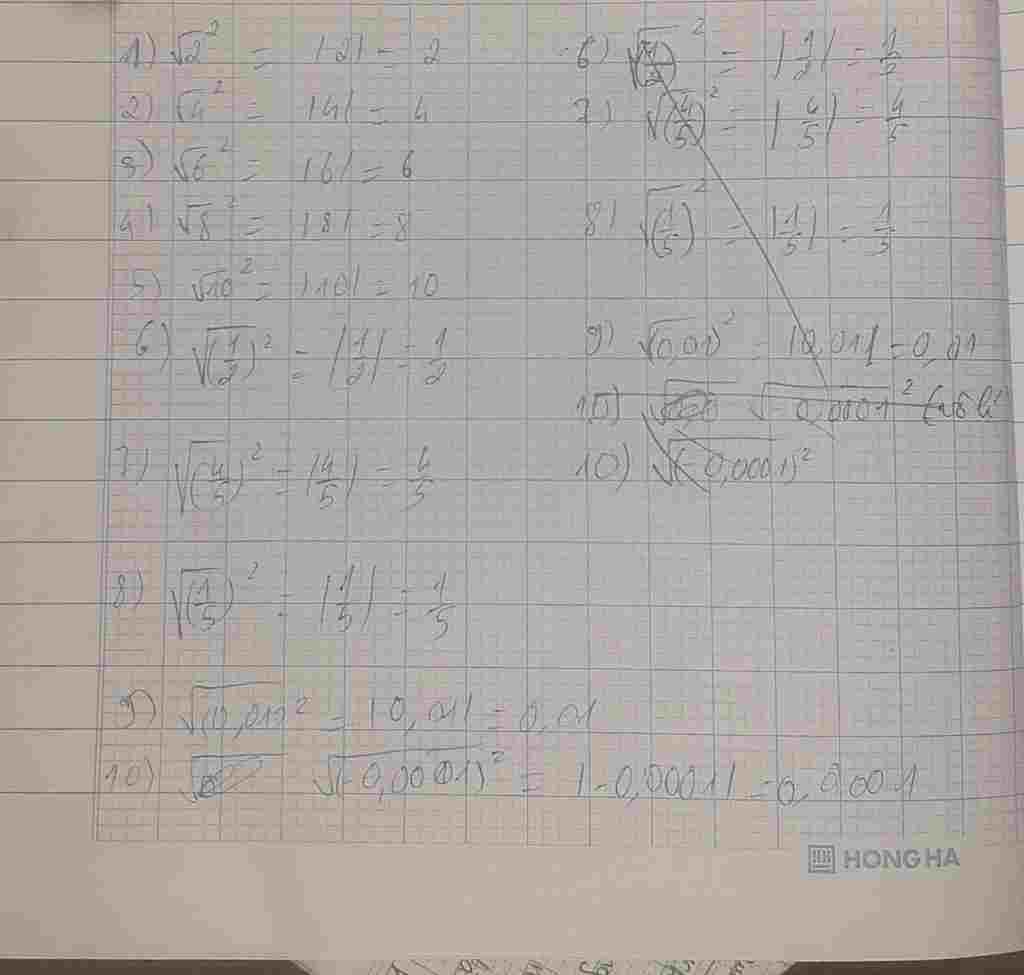 1) √2² = |2| = 2
2) √4² = |4| = 4
3) √6² = |6| = 6
4) √8² = |8| = 8
5) √10² = |10| = 10
6) √(1/2)² = |1/2| = 1/2
7) √(4/5)² = |4/5| = 4/5
8) √(1/5)² = |1/5| = 1/5
9) √(0,01)² = |0,01| = 0,01
10) √(-0,0001)² = |-0,0001| = 0,0001
6) √(1/2)² = |1/2| = 1/2
7) √(4/5)² = |4/5| = 4/5
8) √(1/5)² = |1/5| = 1/5
9) √(0,01)² = |0,01| = 0,01
10) √-0,0001²
10) √(-0,0001)²
HONG HA